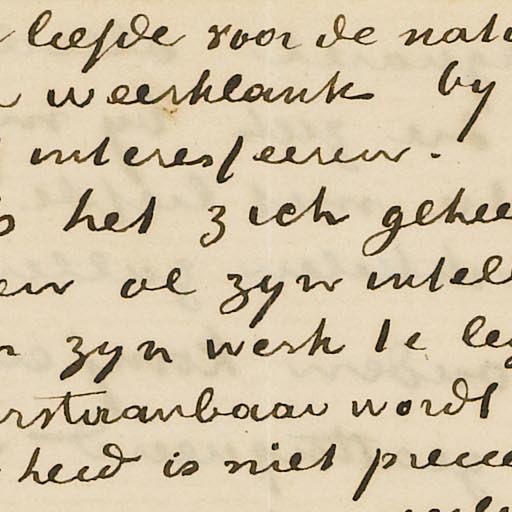 liefde voor de natu
weerklank by
interesseeren.
het zich gehee
en al zyn intell
zyn werk te leg
erstaanbaar wordt
heid is niet precie